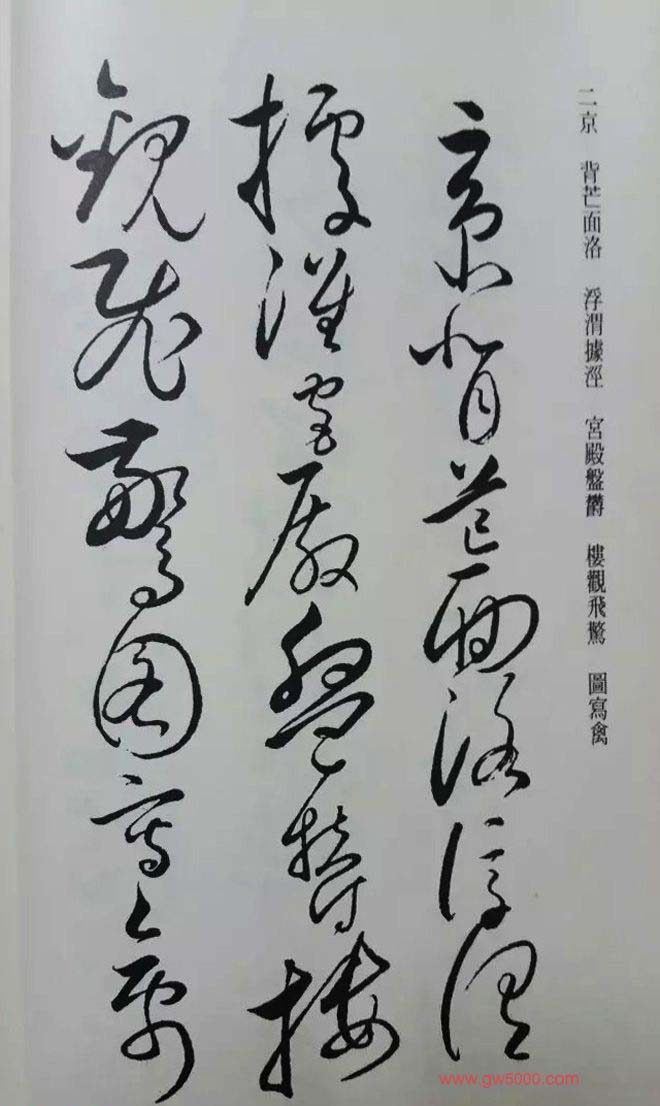 二京 背芒面洛 浮渭據涇 宮殿盤欝 樓觀飛驚 圖寫禽
京背芒面洛浮渭
據涇宮殿盤欝樓
觀飛驚圖寫禽
www.gw5000.com